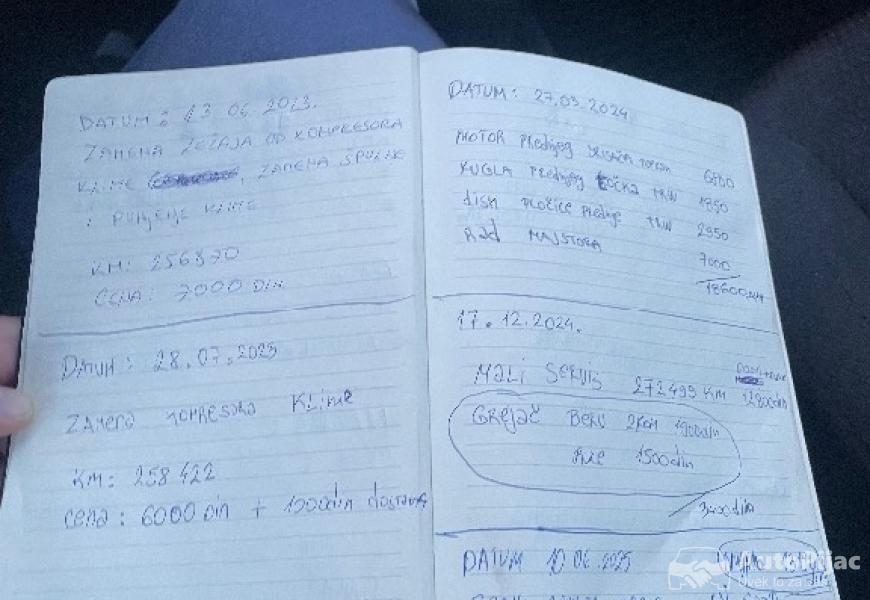 DATUM: 13 06 2023.
ZAMENA LEŽAJA OD KOMPRESORA
KLIME, ZAMENA ŠPULNE
i PUNJENJE KLIME
KM: 256870
CENA: 7000 DIN
DATUM: 28.07.2023
ZAMENA KOMPRESORA KLIME
KM: 258422
CENA: 6000 DIN + 1000din dostava
DATUM: 27.03.2024
MOTOR PREDNJEG 6800
KUGLA PREDNJEG TOČKA TRW 1850
DISK PLOČICE PREDNJE TRW 2950
RAD MAJSTORA 7000
18600
17.12.2024.
MALI SERVIS 272495 KM
GREJAČ BERU 2kom 1900din
1500din
3400din
DATUM 10 06.2025
AutoPijac
Uvek tu za